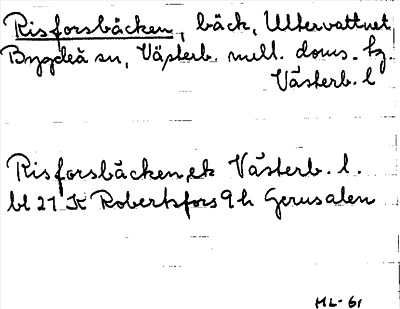 Risforsbäcken, bäck, Ultervattnet
Bygdeå sn, Västerb. mell. doms. tg.
Västerb. l
Risforsbäcken, ek Västerb. l.
bl 21 K Robertsfors 9 h Gerusalen
ML-61